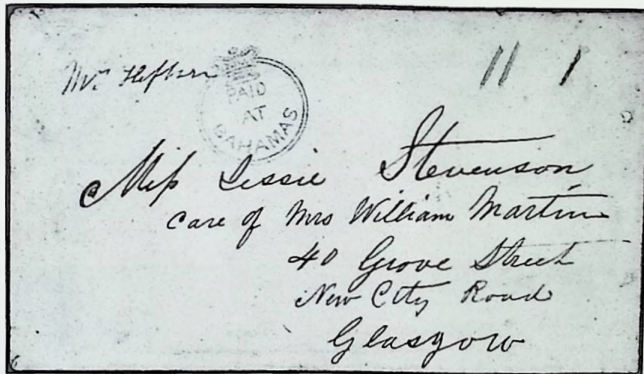 Mr. Hepburn
11 1
PAID
AT
BAHAMAS
Miss Jessie Stevenson
care of Mrs William Martin
40 Grove Street
New City Road
Glasgow